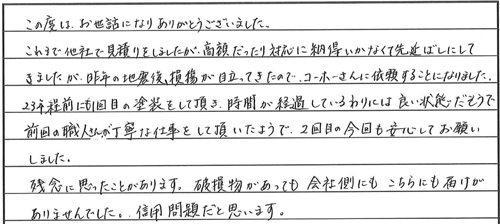 この度は、お世話になりありがとうございました。
これまで他社で見積りをしましたが、高額だったり対応に納得いかなくて先延ばしにして
きましたが、昨年の地震後、損傷が目立ってきたので、コーホーさんに依頼することになりました。
23年程前にも1回目の塗装をして頂き、時間が経過しているわりには良い状態だそうで
前回の職人さんが丁寧な仕事をして頂いたようで、2回目の今回も安心してお願い
しました。
残念に思ったことがあります。破損物があっても会社側にもこちらにも届けが
ありませんでした。信用問題だと思います。